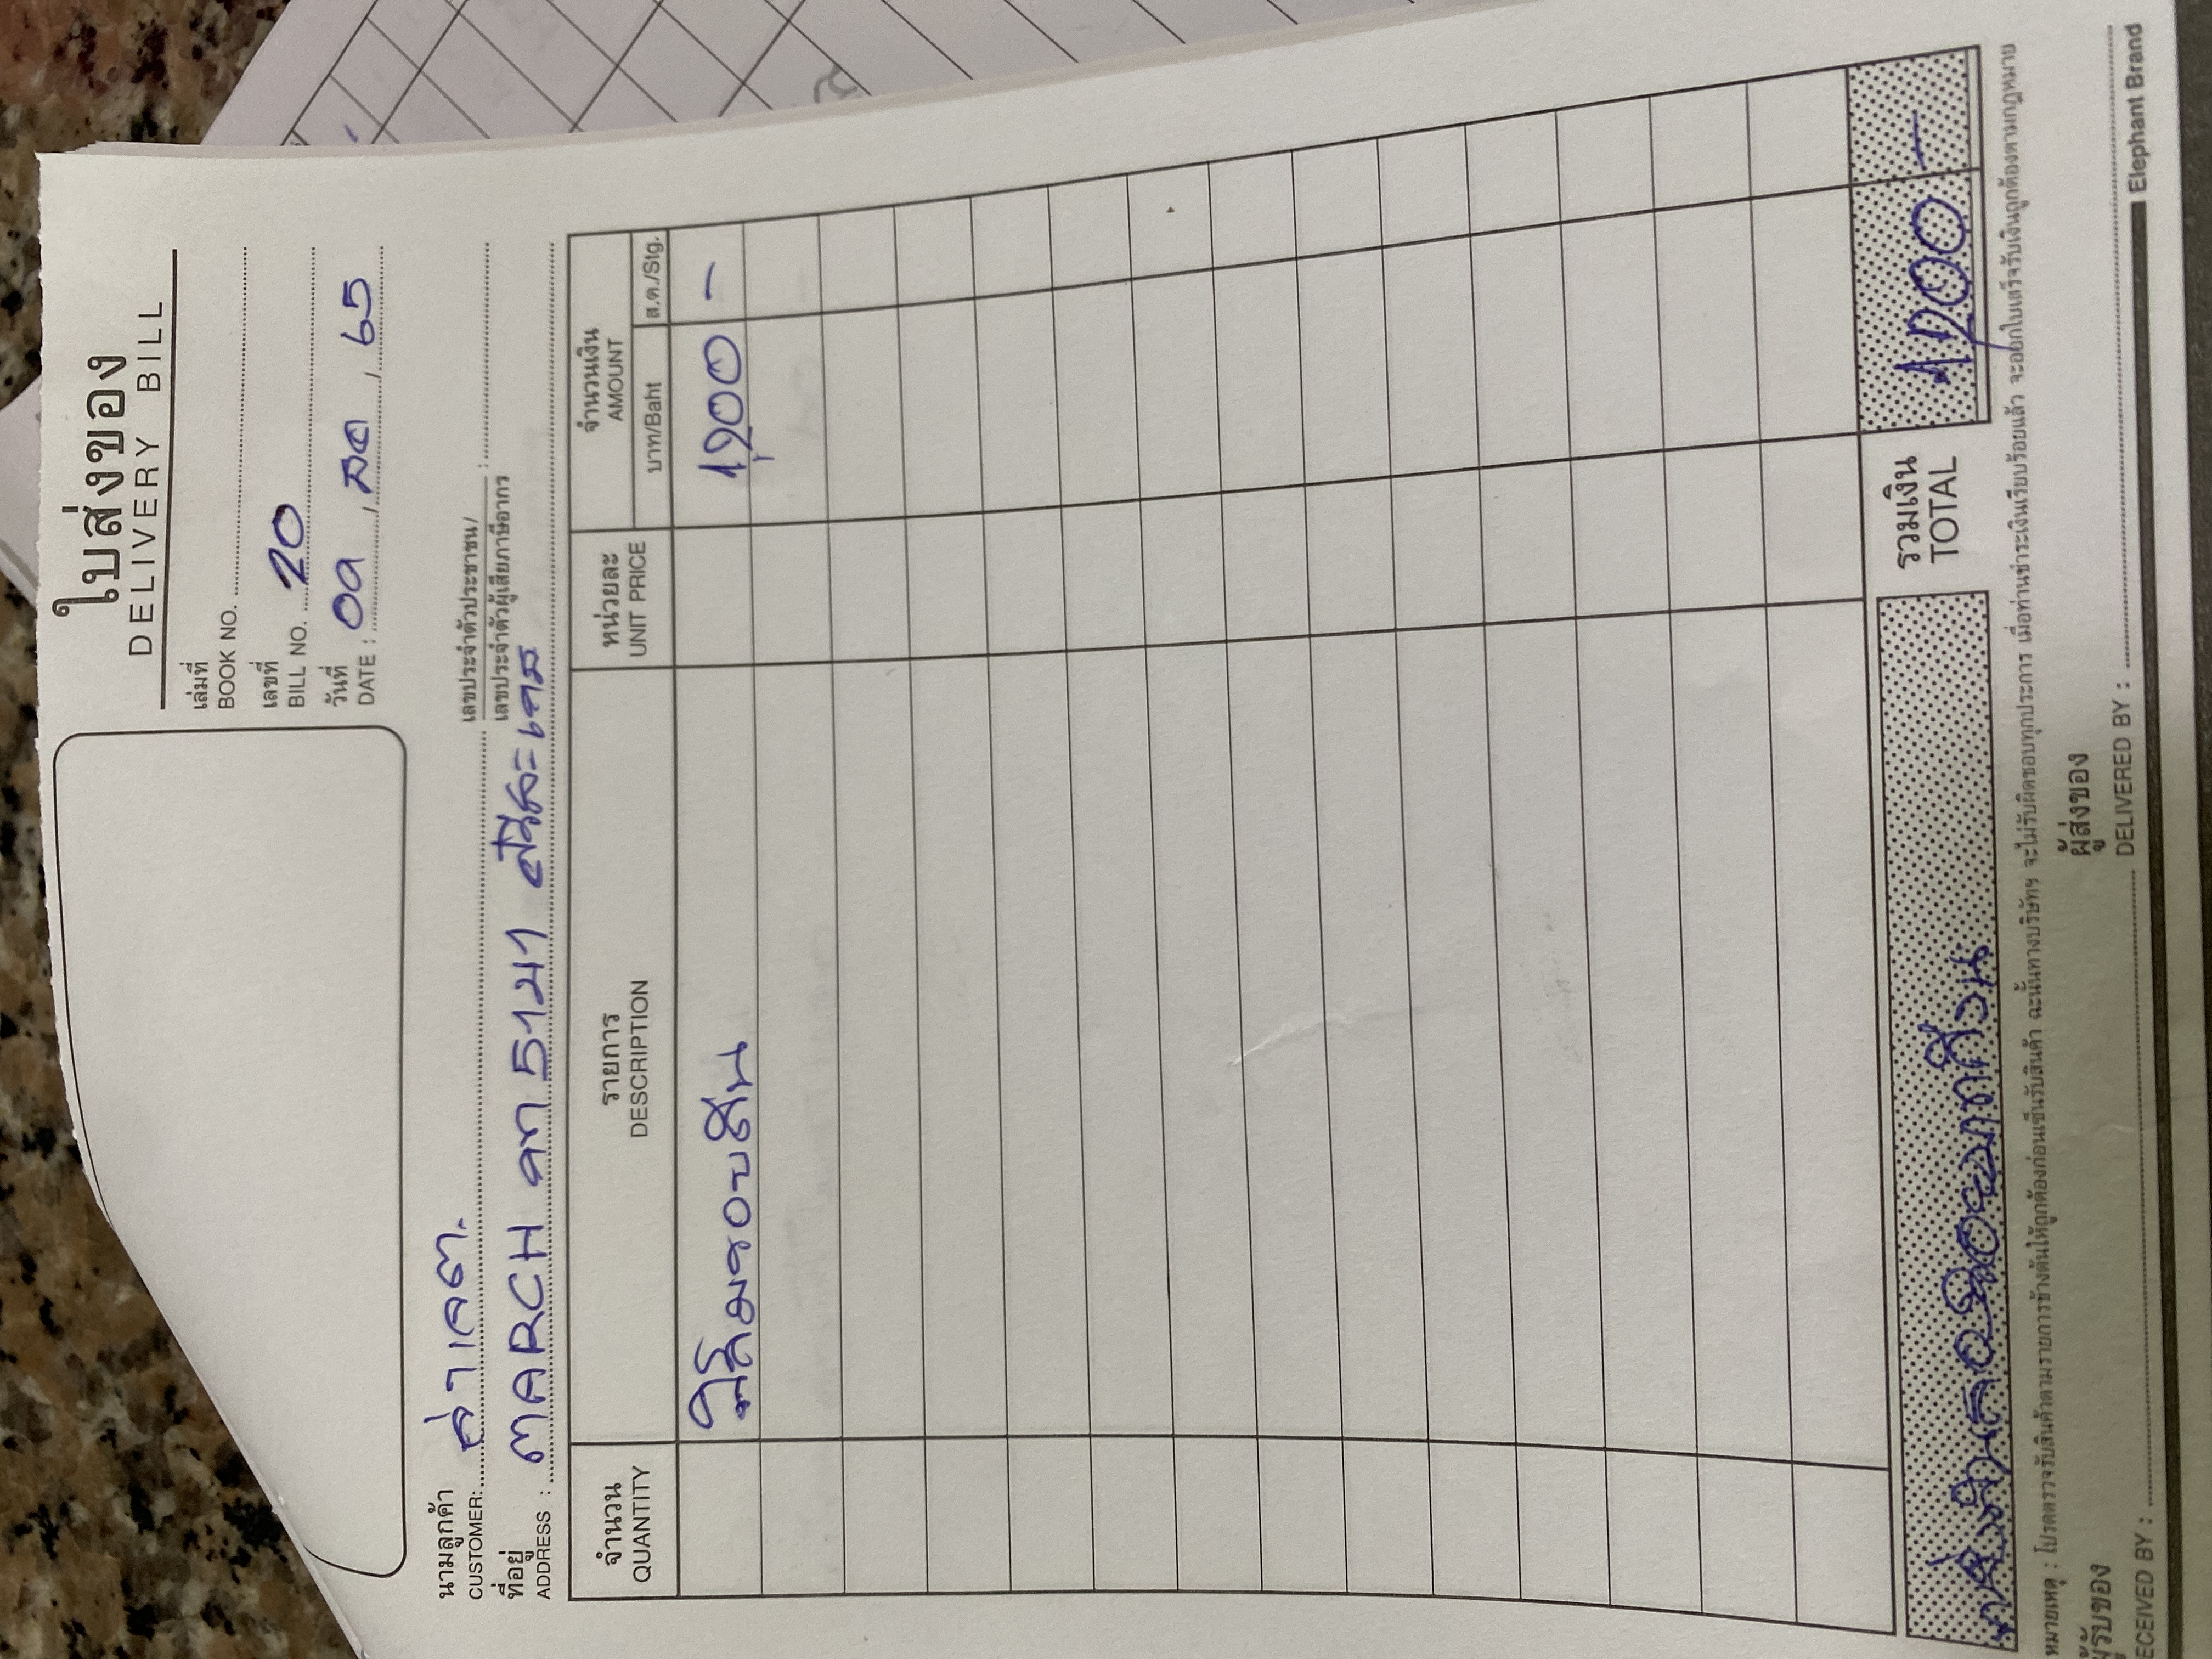 ใบส่งของ
DELIVERY BILL
เล่มที่
BOOK NO.
เลขที่
BILL NO. 20
วันที่
DATE : 09, สค, 65
นามลูกค้า
CUSTOMER:
เลขประจำตัวประชาชน/
เลขประจำตัวผู้เสียภาษีอากร :
ที่อยู่
ADDRESS : MARCH 5121
จำนวน รายการ หน่วยละ จำนวนเงิน
QUANTITY DESCRIPTION UNIT PRICE AMOUNT
บาท/Baht ส.ต./Stg.
ฟิล์มรอบคัน 1,200 -
หนึ่งพันสองร้อยบาทถ้วน
รวมเงิน
TOTAL 1,200 -
หมายเหตุ : โปรดตรวจรับสินค้าตามรายการข้างต้นให้ถูกต้องก่อนเซ็นรับสินค้า ฉะนั้นทางบริษัทฯ จะไม่รับผิดชอบทุกประการ เมื่อท่านชำระเงินเรียบร้อยแล้ว จะออกใบเสร็จรับเงินถูกต้องตามกฎหมาย
ผู้รับของ
RECEIVED BY :
ผู้ส่งของ
DELIVERED BY :
Elephant Brand